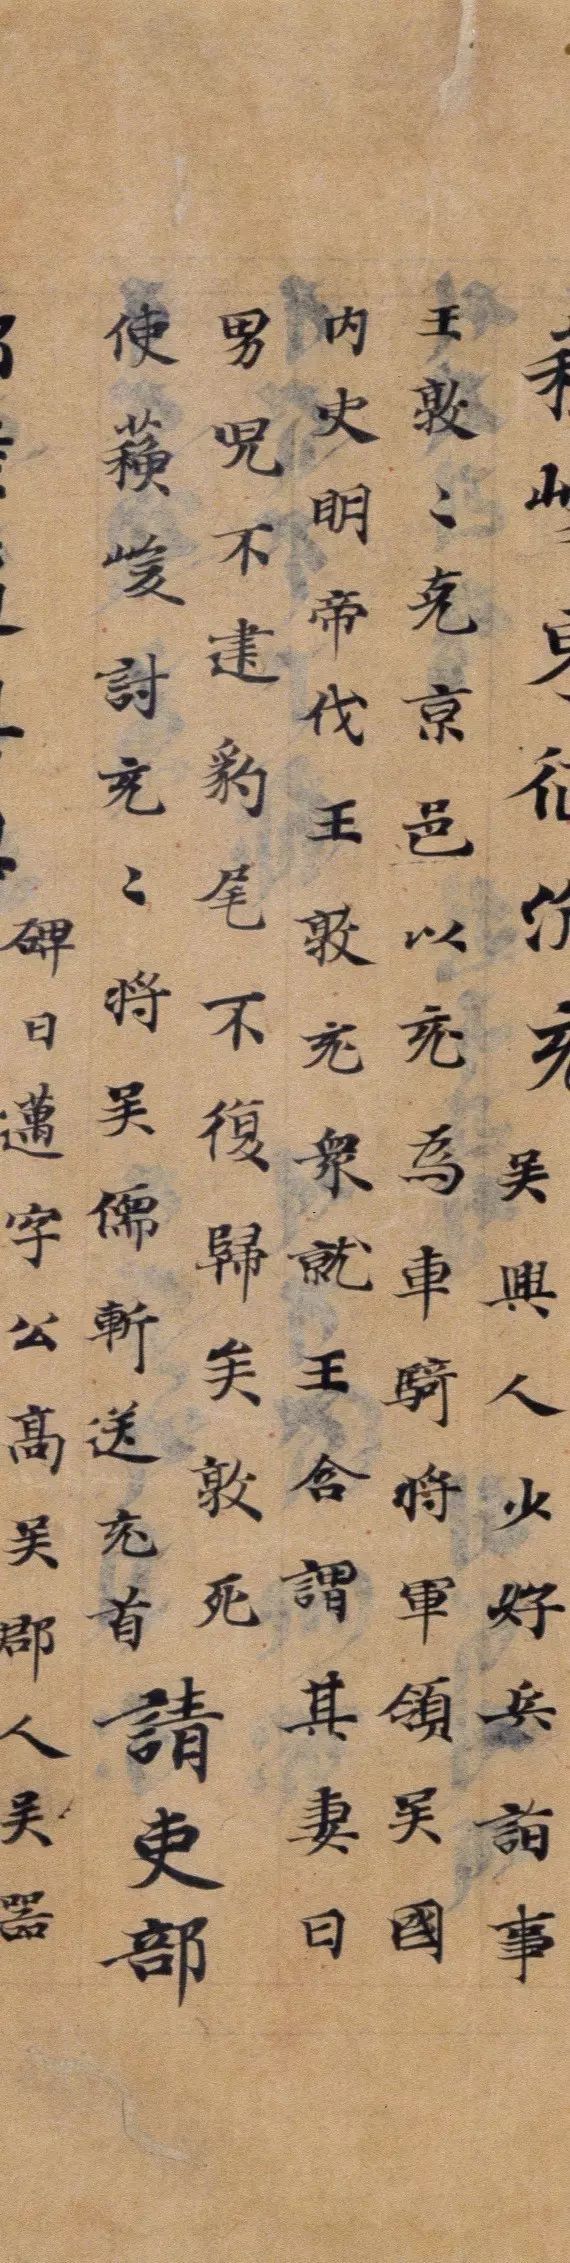 蘇峻東征沈充吳興人少好兵諂事
王敦〻克京邑以充為車騎將軍領吳國
内史明帝伐王敦充衆就王含謂其妻曰
男兒不建豹尾不復歸矣敦死
使蘓峻討充〻將吳儒斬送充首請吏部
碑曰邁字公高吴郡人吴器